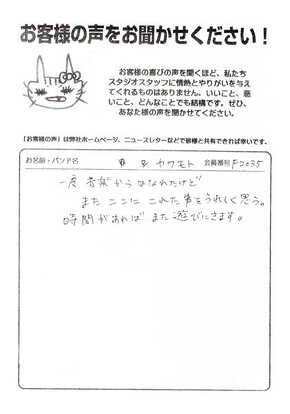 お客様の声をお聞かせください！
お客様の喜びの声を聞くほど、私たち
スタジオスタッフに情熱とやりがいを与え
てくれるものはありません。いいこと、悪
いこと、どんなことでも結構です。ぜひ、
あなた様の声を聞かせてください。
「お客様の声」は弊社ホームページ、ニュースレターなどで皆様と共有できれば幸いです。
お名前・バンド名 カワモト 会員番号 F2035
一度 音楽からはなれたけど
また ここに これた事をうれしく思う。
時間があれば また 遊びにきます。